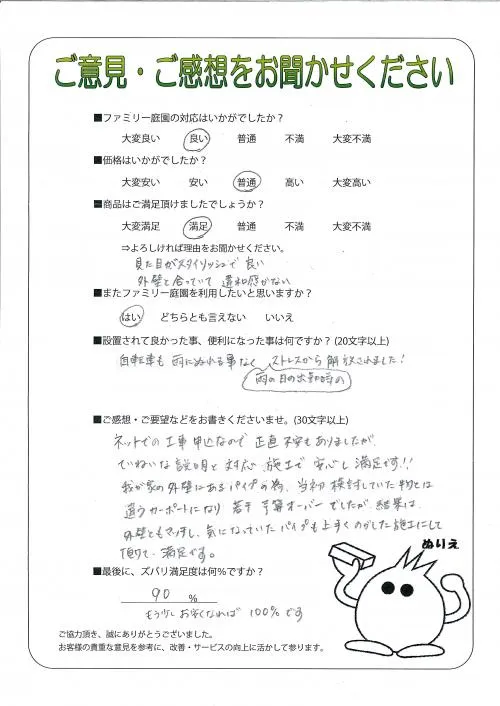 ご意見・ご感想をお聞かせください
■ファミリー庭園の対応はいかがでしたか？
大変良い 良い 普通 不満 大変不満
■価格はいかがでしたか？
大変安い 安い 普通 高い 大変高い
■商品はご満足頂けましたでしょうか？
大変満足 満足 普通 不満 大変不満
⇒よろしければ理由をお聞かせください。
見た目がスタイリッシュで良い
外壁と合っていて 違和感がない
■またファミリー庭園を利用したいと思いますか？
はい どちらとも言えない いいえ
■設置されて良かった事、便利になった事は何ですか？(20文字以上)
自転車も 雨にぬれる事なく ストレスから解放されました！
雨の日の出勤時の
■ご感想・ご要望などをお書きくださいませ。(30文字以上)
ネットでの工事申込なので 正直不安もありましたが
ていねいな説明と対応 施工で 安心し満足です!!
我が家の外壁にあるパイプの為、当初検討していた物とは
違うカーポートになり 若干予算オーバーでしたが 結果は
外壁ともマッチし、気になっていたパイプも上手くのがした施工にして
頂けて 満足です。
ぬりえ
■最後に、ズバリ満足度は何％ですか？
90 ％
もう少しお安くなれば 100％です
ご協力頂き、誠にありがとうございました。
お客様の貴重な意見を参考に、改善・サービスの向上に活かして参ります。